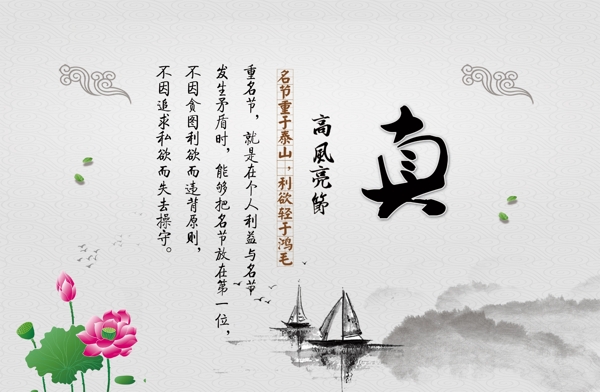 真
高風亮節
名节重于泰山，利欲轻于鸿毛
重名节，就是在个人利益与名节
发生矛盾时，能够把名节放在第一位，
不因贪图利欲而违背原则，
不因追求私欲而失去操守。